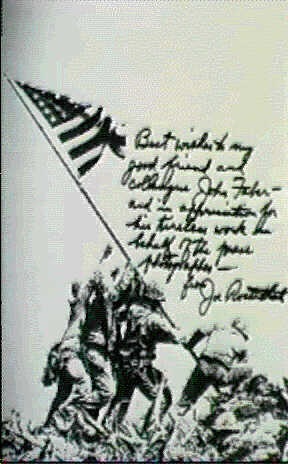 Best wishes to my
good friend and
colleague John Faber —
and in appreciation for
his tireless work in
behalf of the press
photographer —
from
Joe Rosenthal